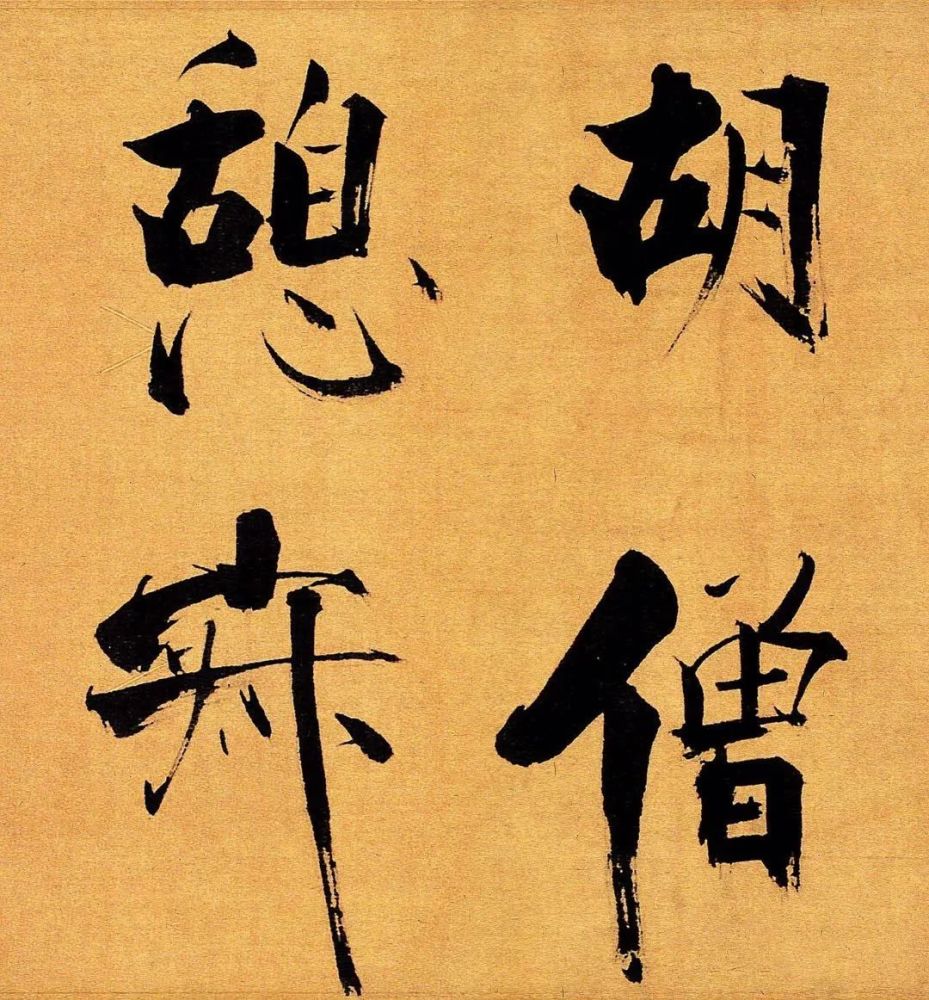 胡僧
憩寂